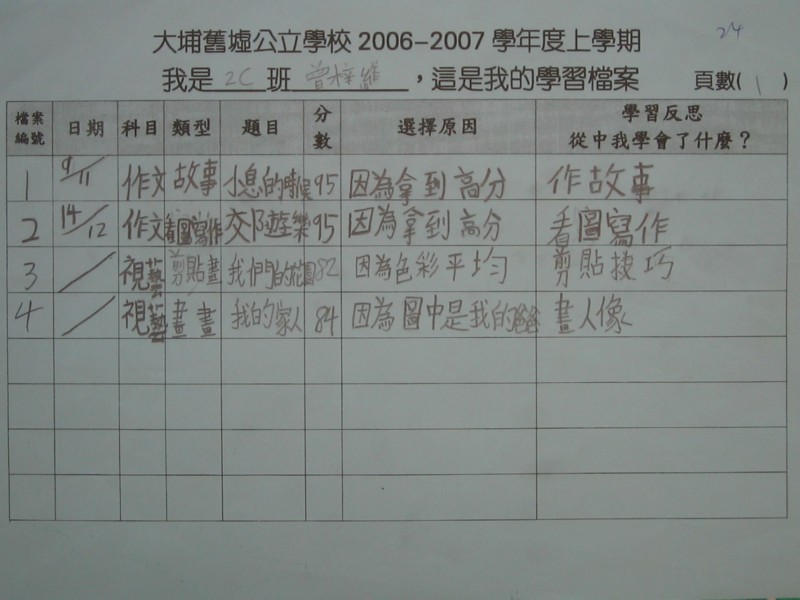 24
大埔舊墟公立學校 2006-2007 學年度上學期
我是 2C 班 曾梓 ，這是我的學習檔案 頁數( 1 )
檔案編號 日期 科目 類型 題目 分數 選擇原因 學習反思 從中我學會了什麼？
1 9/11 作文 故事 小息的時候 95 因為拿到高分 作故事
2 14/12 作文 看圖寫作 遊樂 95 因為拿到高分 看圖寫作
3 / 視藝 剪貼畫 我們的花園 82 因為色彩平均 剪貼技巧
4 / 視藝 畫畫 我的家人 84 因為圖中是我的爸爸 畫人像